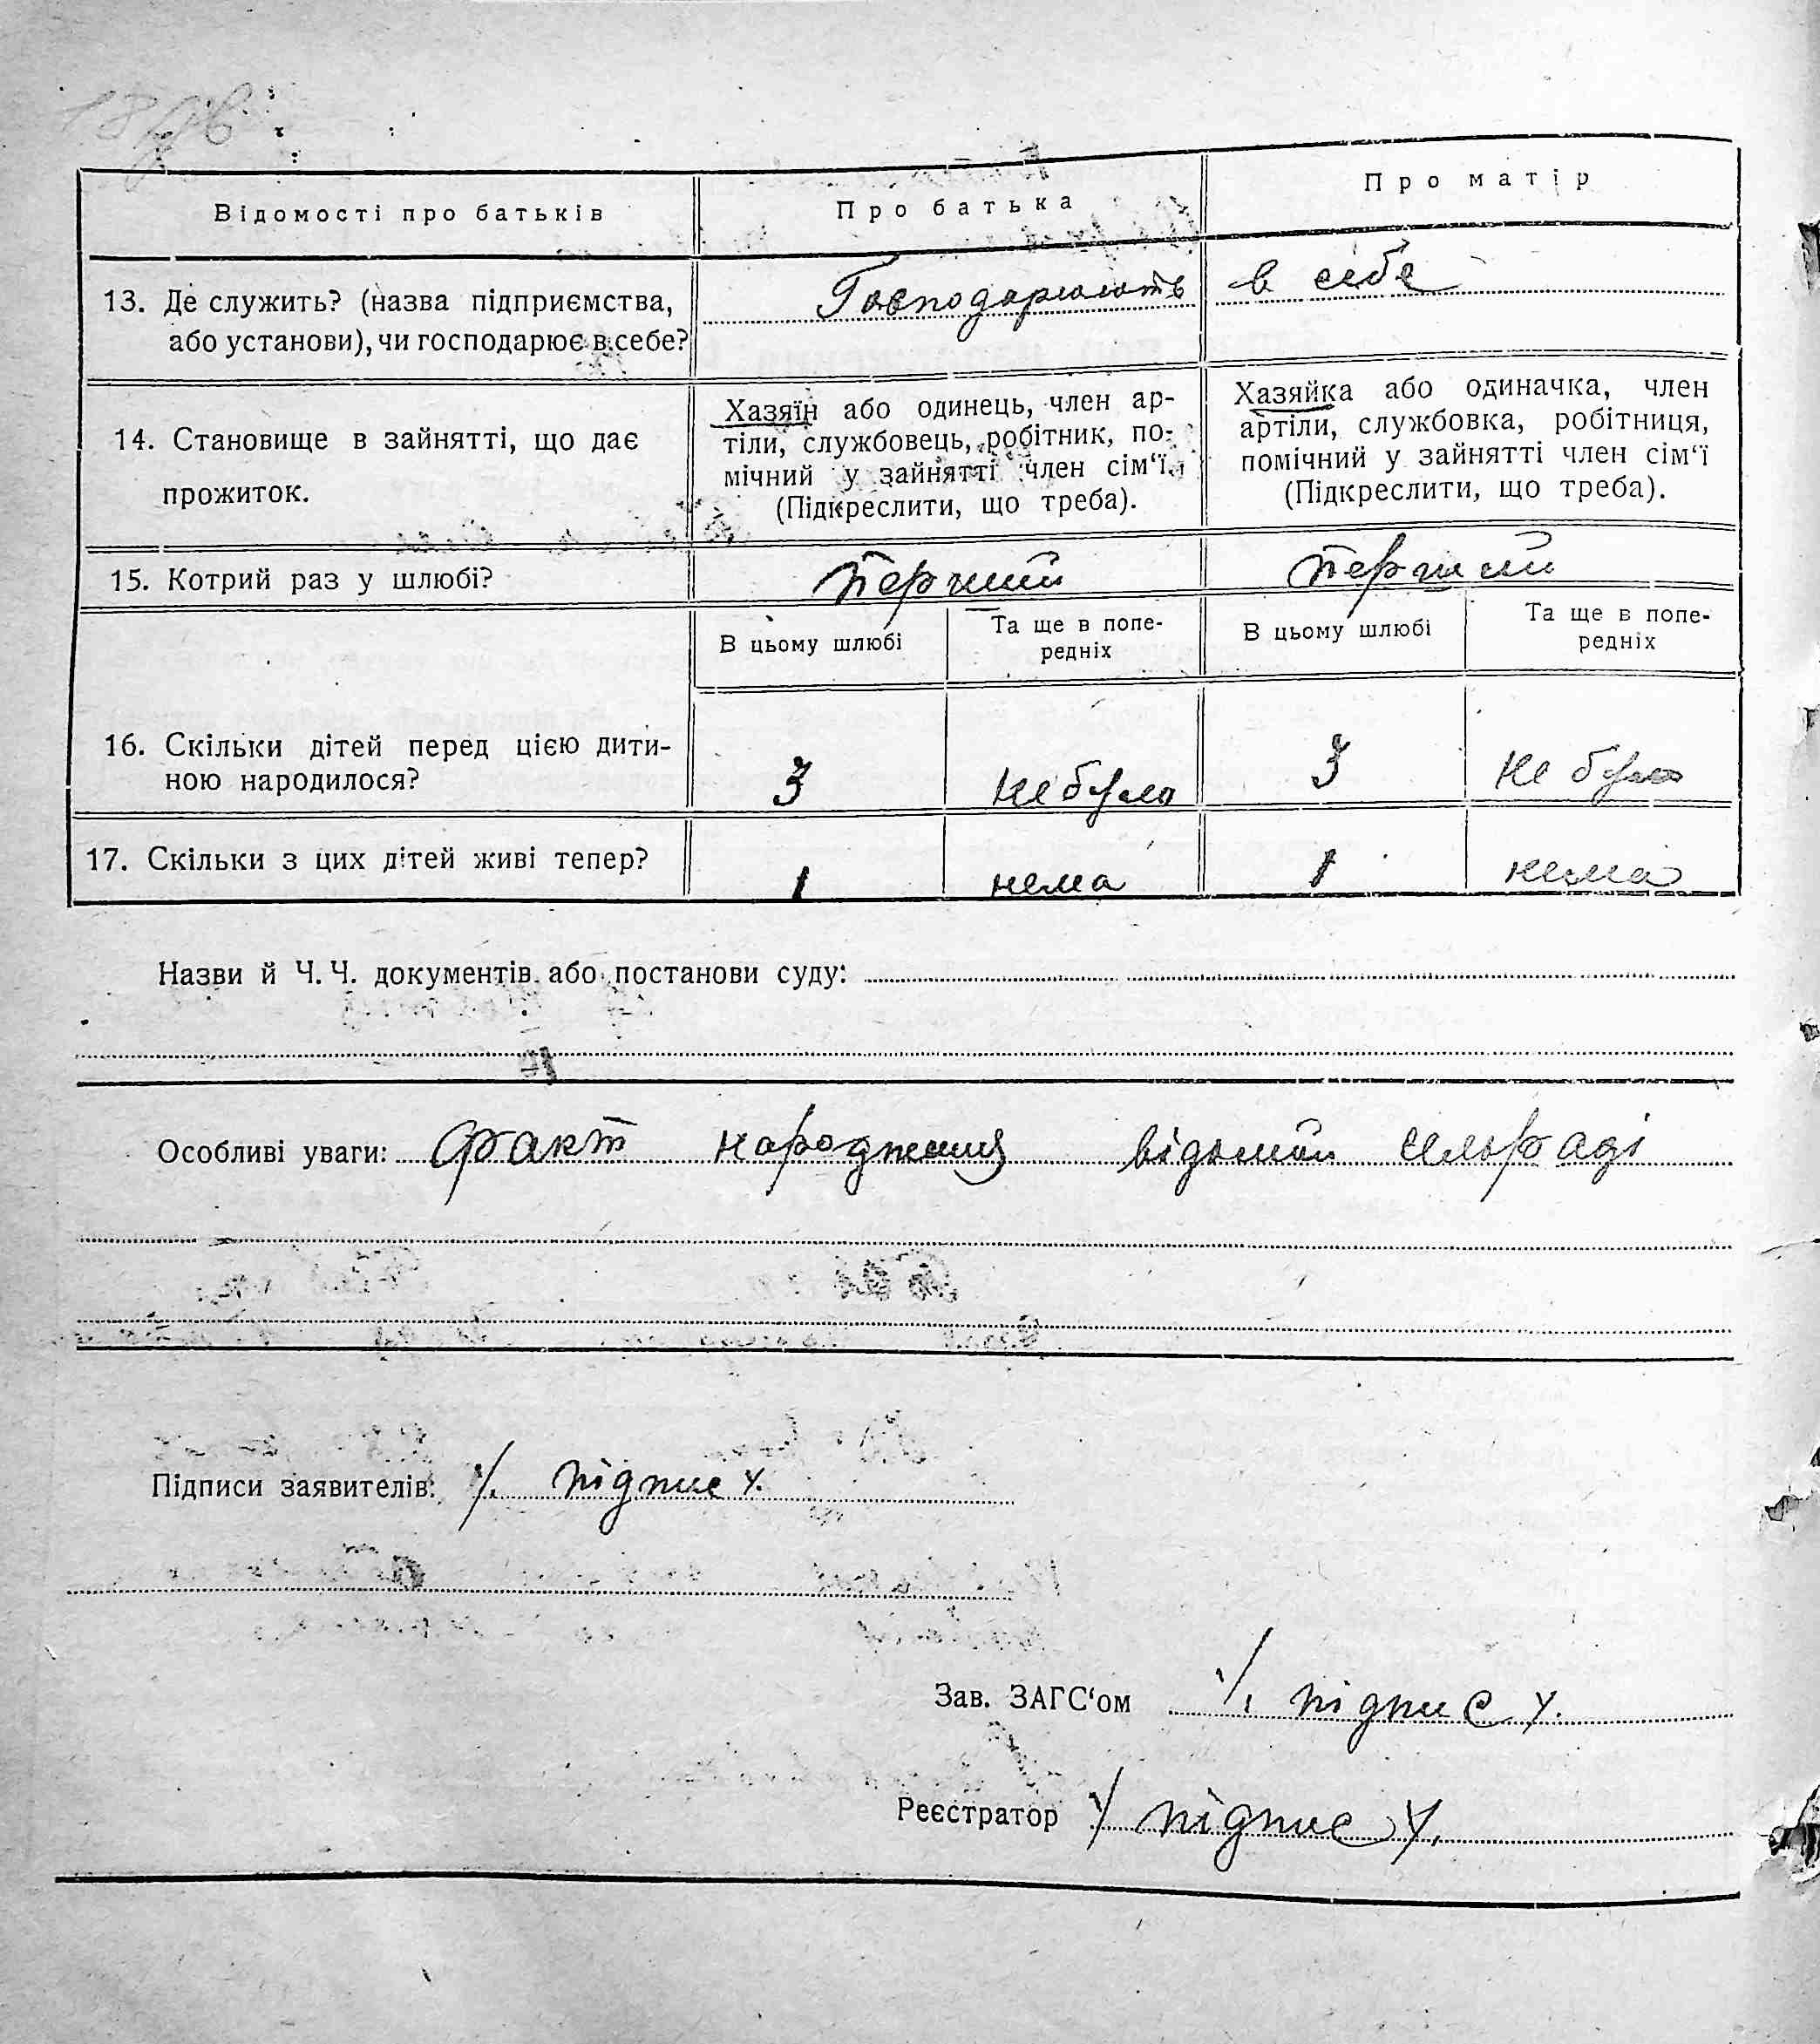 Відомості про батьків
Про батька
Про матір
13. Де служить? (назва підприємства,
або установи), чи господарює в себе?
Господарюють в себе
14. Становище в зайнятті, що дає
прожиток.
Хазяїн або одинець, член ар-
тіли, службовець, робітник, по-
мічний у зайнятті член сім‘ї.
(Підкреслити, що треба).
Хазяйка або одиначка, член
артіли, службовка, робітниця,
помічний у зайнятті член сім‘ї
(Підкреслити, що треба).
15. Котрий раз у шлюбі?
Перший
Перший
В цьому шлюбі
Та ще в попе-
редніх
В цьому шлюбі
Та ще в попе-
редніх
16. Скільки дітей перед цією дити-
ною народилося?
3
не було
3
не було
17. Скільки з цих дітей живі тепер?
1
нема
1
нема
Назви й Ч. Ч. документів або постанови суду:
Особливі уваги: Факт народження відомий сільраді
Підписи заявителів: підпис
Зав. ЗАГС‘ом підпис
Реєстратор підпис